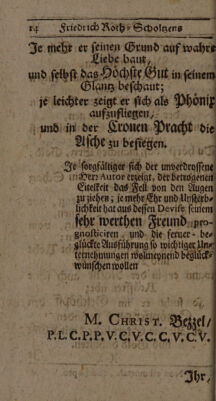 14 Friedrich Roth-Scholtzens
Je mehr er seinen Grund auf wahre
Liebe baut,
und selbst das Höchste Gut in seinem
Glantz beschaut;
je leichter zeigt er sich als Phönix
aufzufliegen,
und in der Cronen Pracht die
Asche zu besiegen.
Je sorgfältiger sich der unverdrossene
Herr Autor erzeiget, der betrogenen
Eitelkeit das Fell von den Augen
zu ziehen; je mehr Ehr und Unsterb-
lichkeit hat aus dessen Devise seinem
sehr werthen Freund pro-
gnosticiren, und die ferner be-
glückte Ausführung so wichtiger Un-
ternehmungen wolmeynend beglück-
wünschen wollen
M. CHRIST. Bezzel/
P. L. C. P. P. V. C, V. C. C, V. C. V.
Ihr,